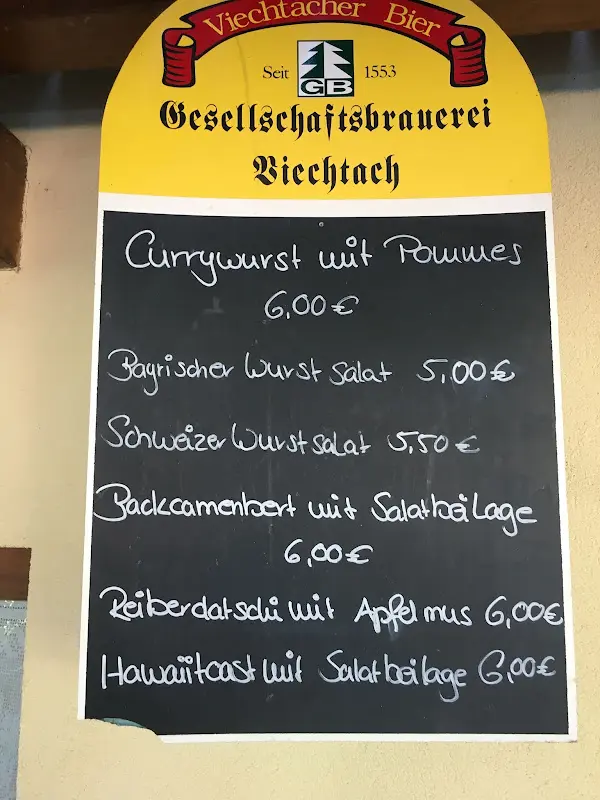 Viechtacher Bier
Seit GB 1553
Gesellschaftsbrauerei
Viechtach
Currywurst mit Pommes
6,00€
Bayrischer Wurst Salat 5,00€
Schweizer Wurstsalat 5,50€
Backcamenbert mit Salatbeilage
6,00€
Reiberdatschi mit Apfelmus 6,00€
Hawaiitoast mit Salatbeilage 6,00€